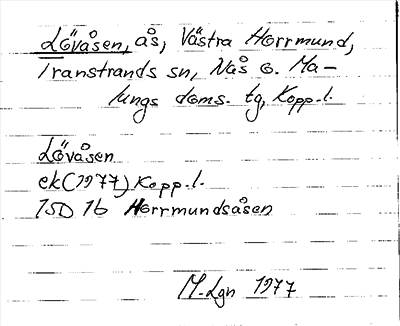 Lövåsen, ås, Västra Horrmund,
Transtrands sn, Nås o. Ma-
lungs doms. tg, Kopp. l.
Lövåsen
ek (1977) Kopp. l.
15D 1b Horrmundsåsen
M. Lgn 1977